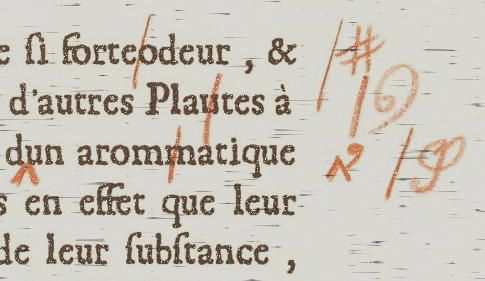 e ſi forteodeur , &
d'autres Plautes à
dun arommatique
s en effet que leur
de leur ſubſtance ,